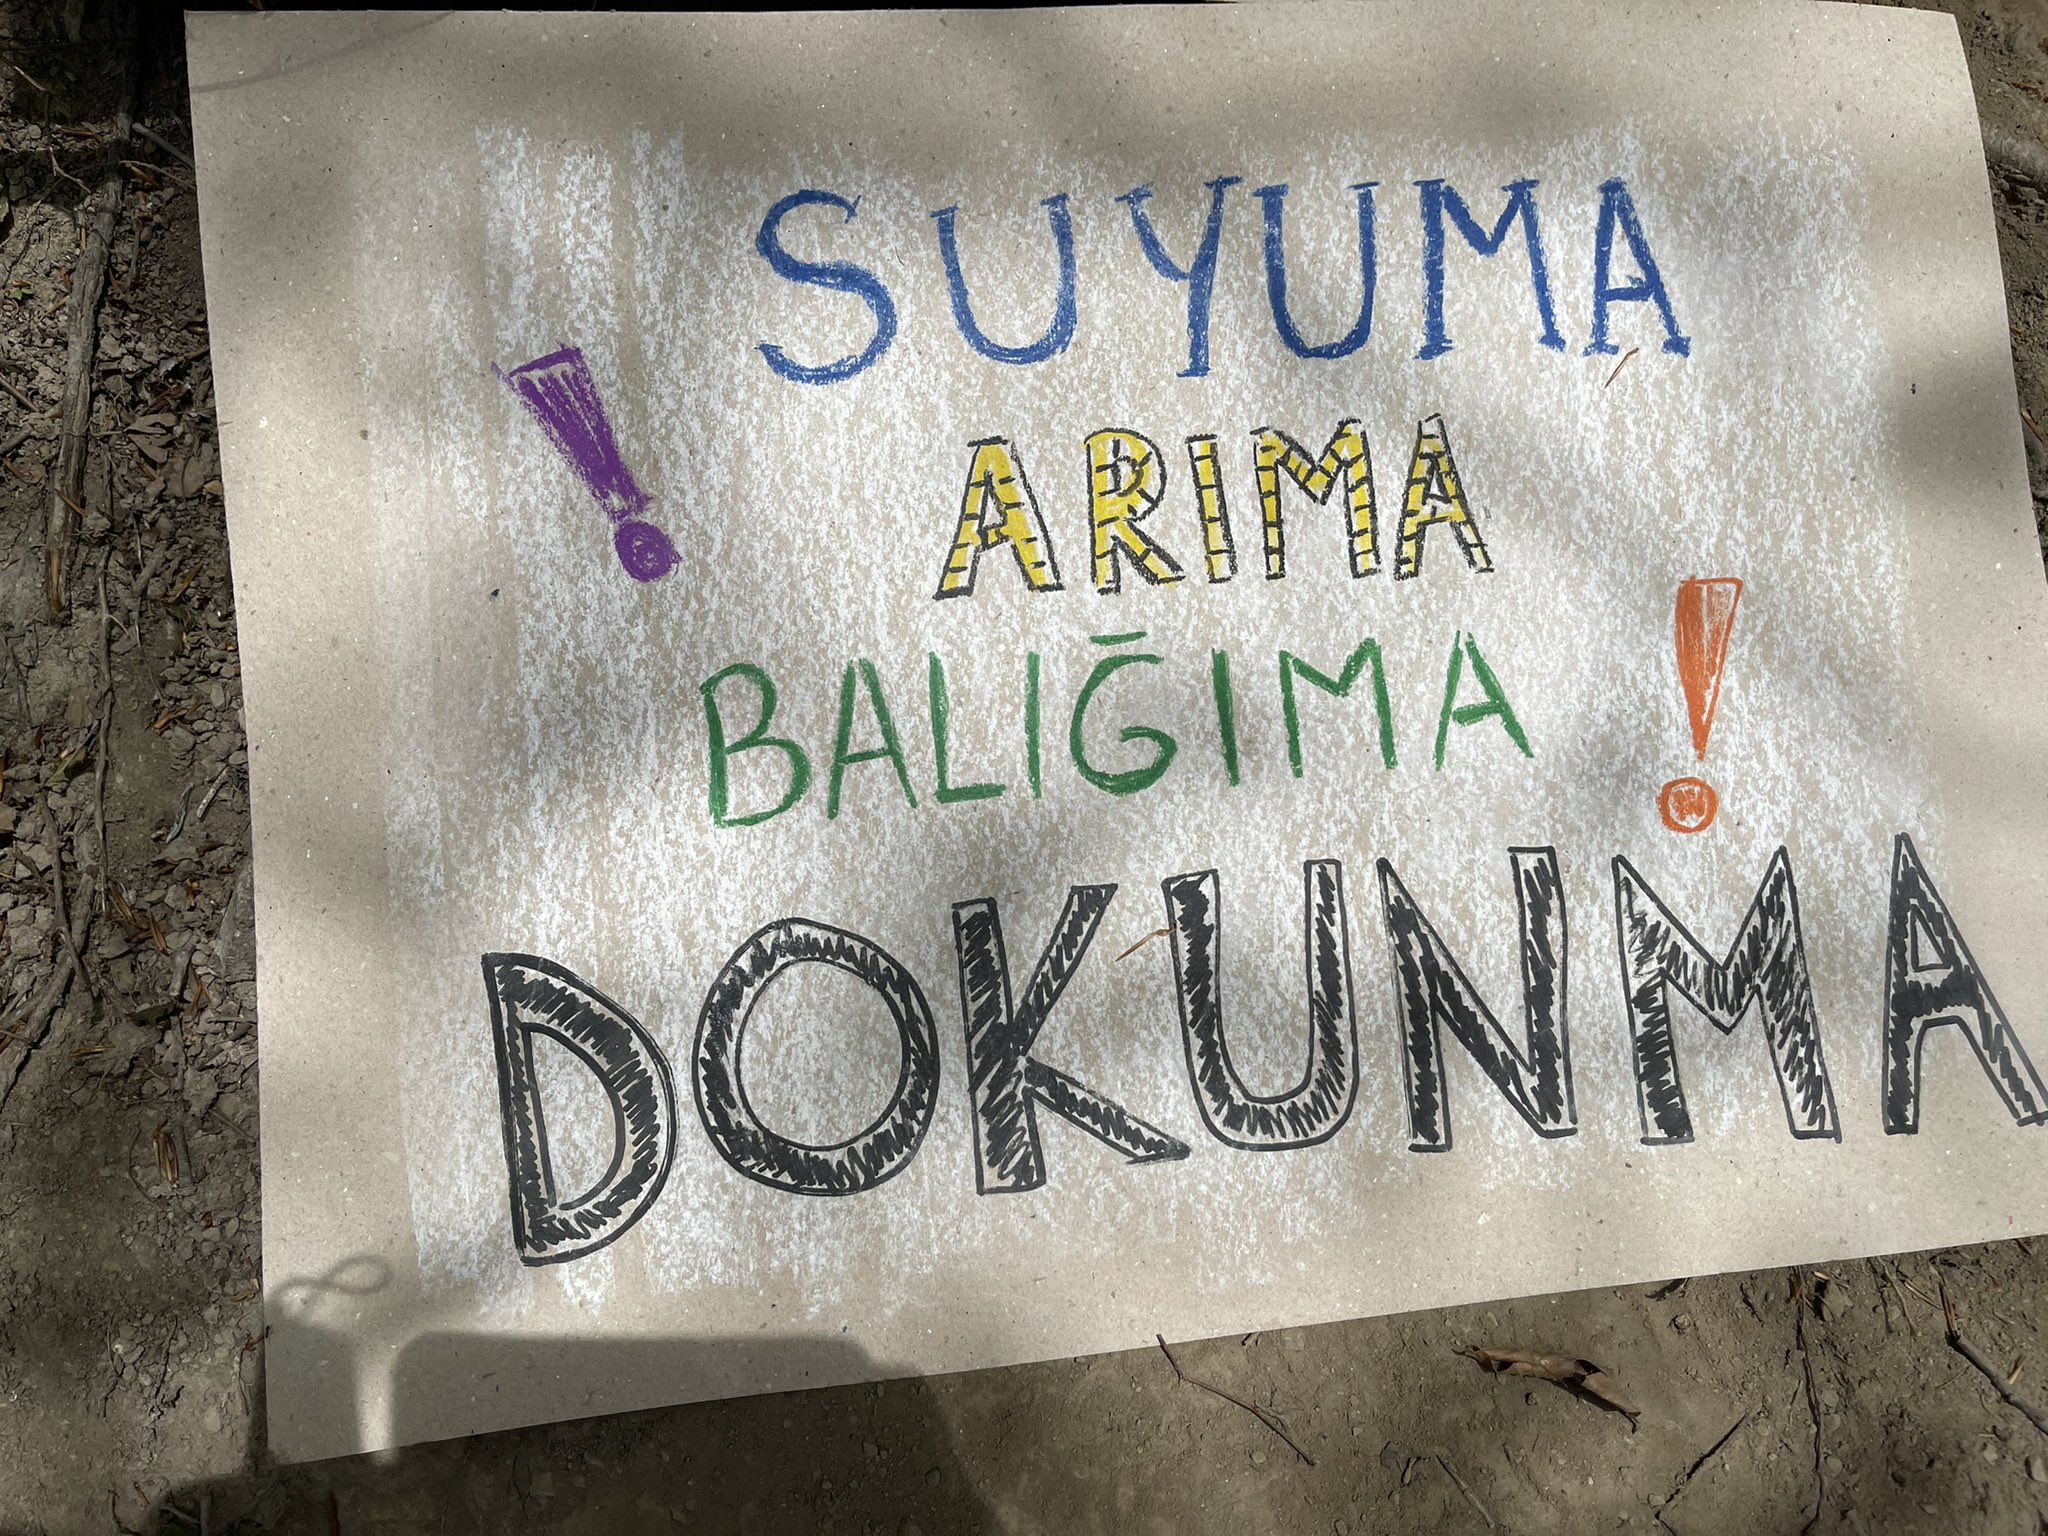 SUYUMA
!
ARIMA
BALIĞIMA
!
DOKUNMA